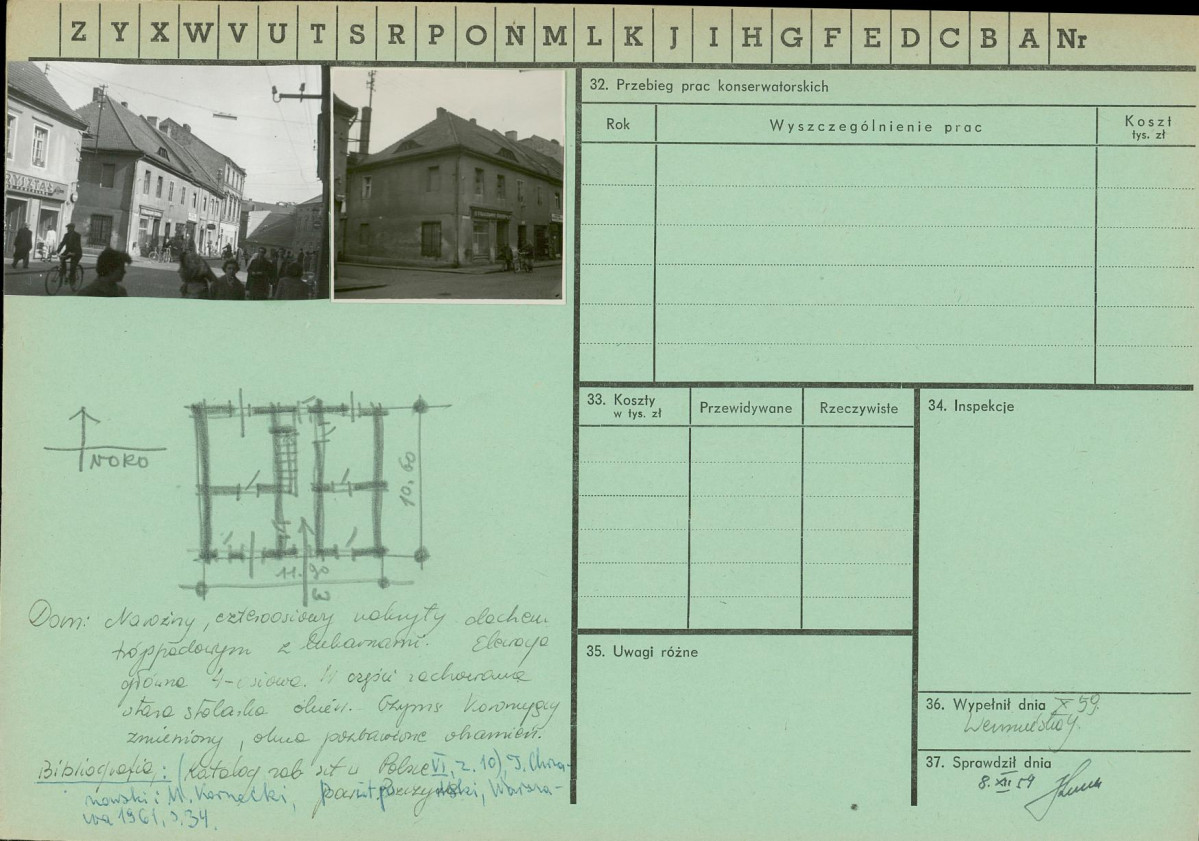 Z Y X W V U T S R P O N M L K J I H G F E D C B A Nr
32. Przebieg prac konserwatorskich
Rok
Wyszczególnienie prac
Koszt
tys. zł
33. Koszty
w tys. zł
Przewidywane
Rzeczywiste
34. Inspekcje
35. Uwagi różne
36. Wypełnił dnia X 59.
37. Sprawdził dnia
8. XII 59
10.60
11.90
Dom: Narożny, czteroosiowy nakryty dachem
trójspadowym z lukarnami. Elewacja
główna 4-osiowa. W części zachowana
stara stolarka okien. Gzyms koronujący
zmieniony, okna pozbawione obramień.
Bibliografia: (Katalog zab szt w Polsce VI, z. 10), T. Chrza-
nowski i M. Kornecki, Warsza-
wa 1961, s. 34.